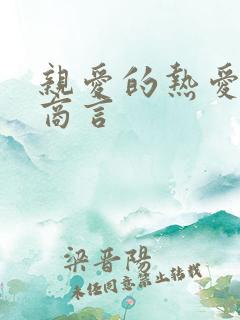 親愛的熱愛
商言
梁晋陽
未經同意禁止轉載